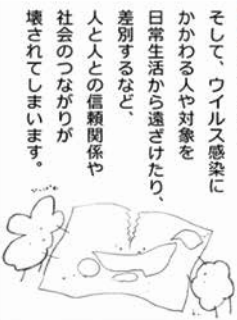 そして、ウイルス感染に
かかわる人や対象を
日常生活から遠ざけたり、
差別するなど、
人と人との信頼関係や
社会のつながりが
壊されてしまいます。